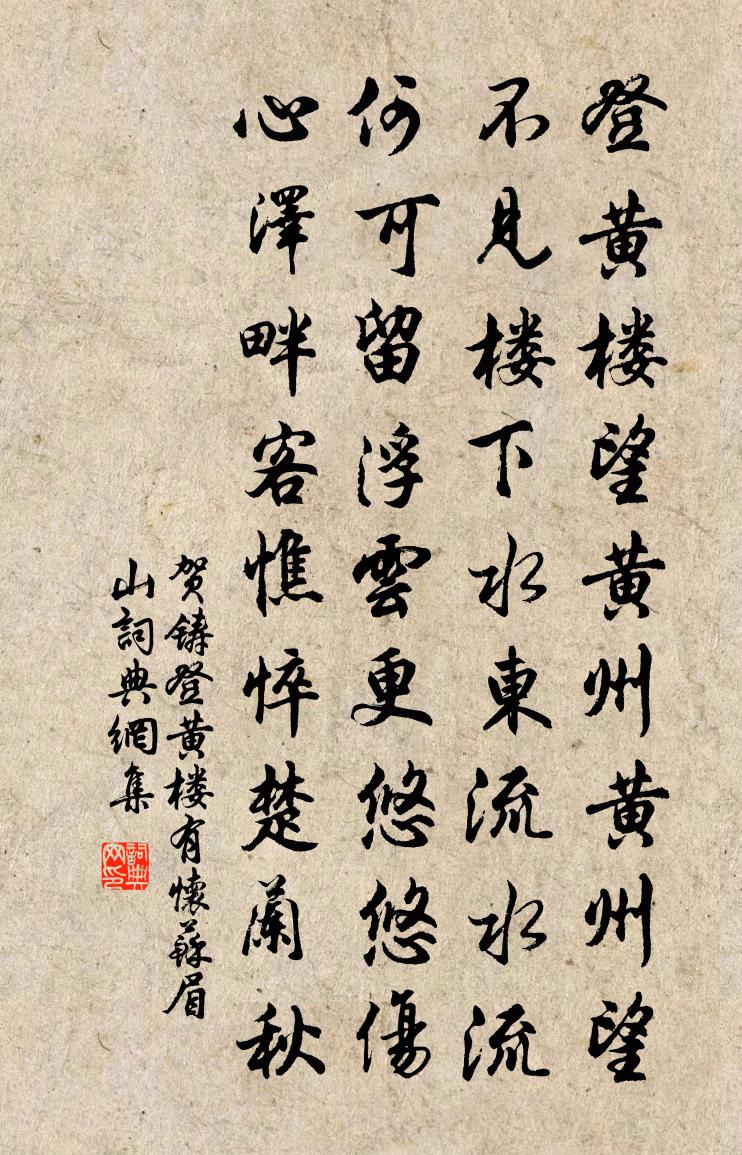 登黄楼望黄州黄州望
不見楼下水東流水流
何可留浮雲更悠悠傷
心澤畔客憔悴楚蘭秋
贺鑄登黄楼有懷蘇眉
山詞典網集
詞典网印